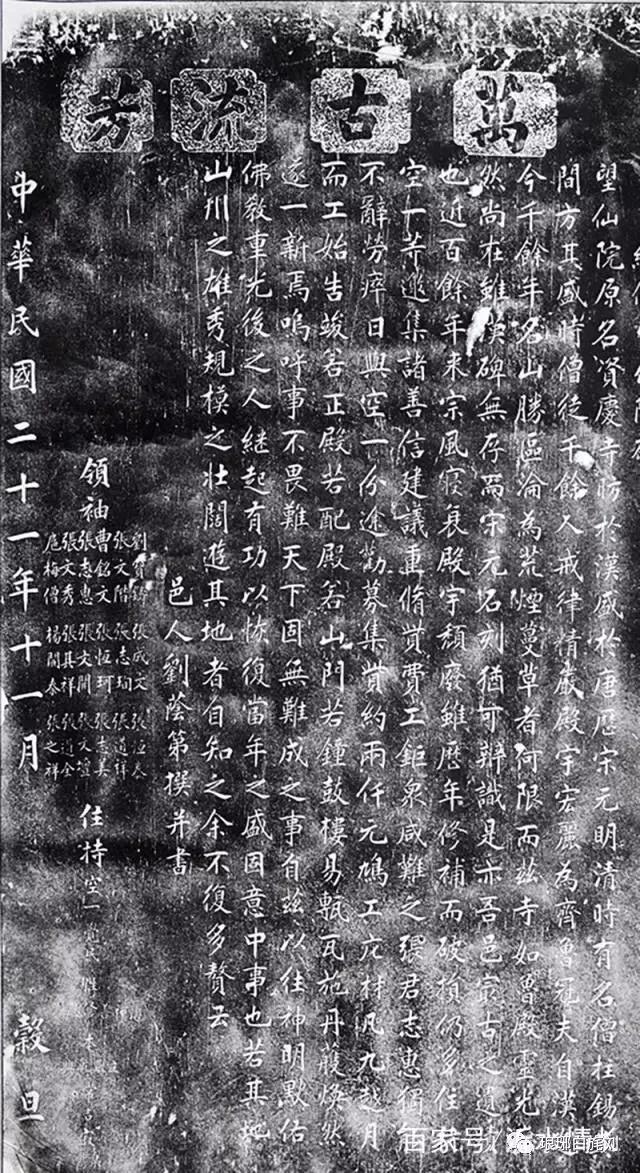 萬古流芳
望仙院原名資慶寺昉於漢盛於唐歷宋元明清時有名僧柱錫
間方其盛時僧徒千餘人戒律精嚴殿宇宏麗為齊魯冠夫自漢
今千餘年名山勝區淪為荒煙蔓草者何限而茲寺如魯殿靈光
然尚在雖漢碑無存而宋元石刻猶可辨識是亦吾邑最古之遺
也近百餘年來宗風寖衰殿宇頹廢雖歷年修補而破損仍多住
空一等邀集諸善信建議重脩貲費工鉅衆咸難之張君志惠獨
不辭勞瘁日與空一份途勸募集貲約兩仟元鳩工庀材凡九越月
而工始告竣若正殿若配殿若山門若鍾鼓樓易甎瓦施丹雘煥然
遂一新焉嗚呼事不畏難天下固無難成之事自茲以往神明默佑
佛教重光後之人繼起有功以恢復當年之盛固意中事也若其地
山川之雄秀規模之壯闊遊其地者自知之余不復多贅云
邑人劉蔭第撰并書
領袖
張文階 張志珣 張道祥
曹銘文 張恒珂 張志美
張志惠 張文開 張文萱
張文秀 張具祥 張道全
梅僧 楊間泰 張之祥
張成文 張恒泰
住持空一
中華民國二十一年十一月 穀旦
百家号
琅琊百旄网